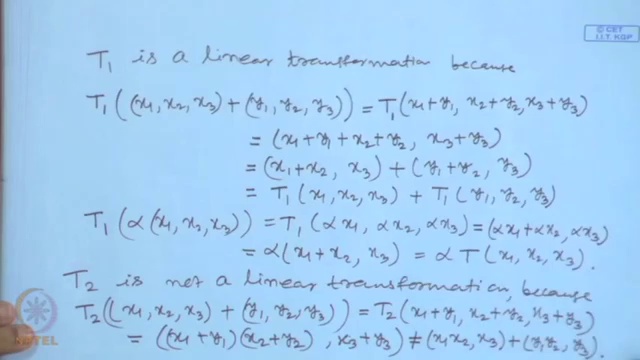 © CET
I.I.T. KGP
T₁ is a linear transformation because
T₁((x₁, x₂, x₃) + (y₁, y₂, y₃)) = T₁(x₁+y₁, x₂+y₂, x₃+y₃)
= (x₁+y₁+x₂+y₂, x₃+y₃)
= (x₁+x₂, x₃) + (y₁+y₂, y₃)
= T₁(x₁, x₂, x₃) + T₁(y₁, y₂, y₃)
T₁(α(x₁, x₂, x₃)) = T₁(αx₁, αx₂, αx₃) = (αx₁+αx₂, αx₃)
= α(x₁+x₂, x₃) = α T(x₁, x₂, x₃).
T₂ is not a linear transformation, because
T₂((x₁, x₂, x₃) + (y₁, y₂, y₃)) = T₂(x₁+y₁, x₂+y₂, x₃+y₃)
= ((x₁+y₁)(x₂+y₂), x₃+y₃) ≠ (x₁x₂, x₃) + (y₁y₂, y₃).
NPTEL